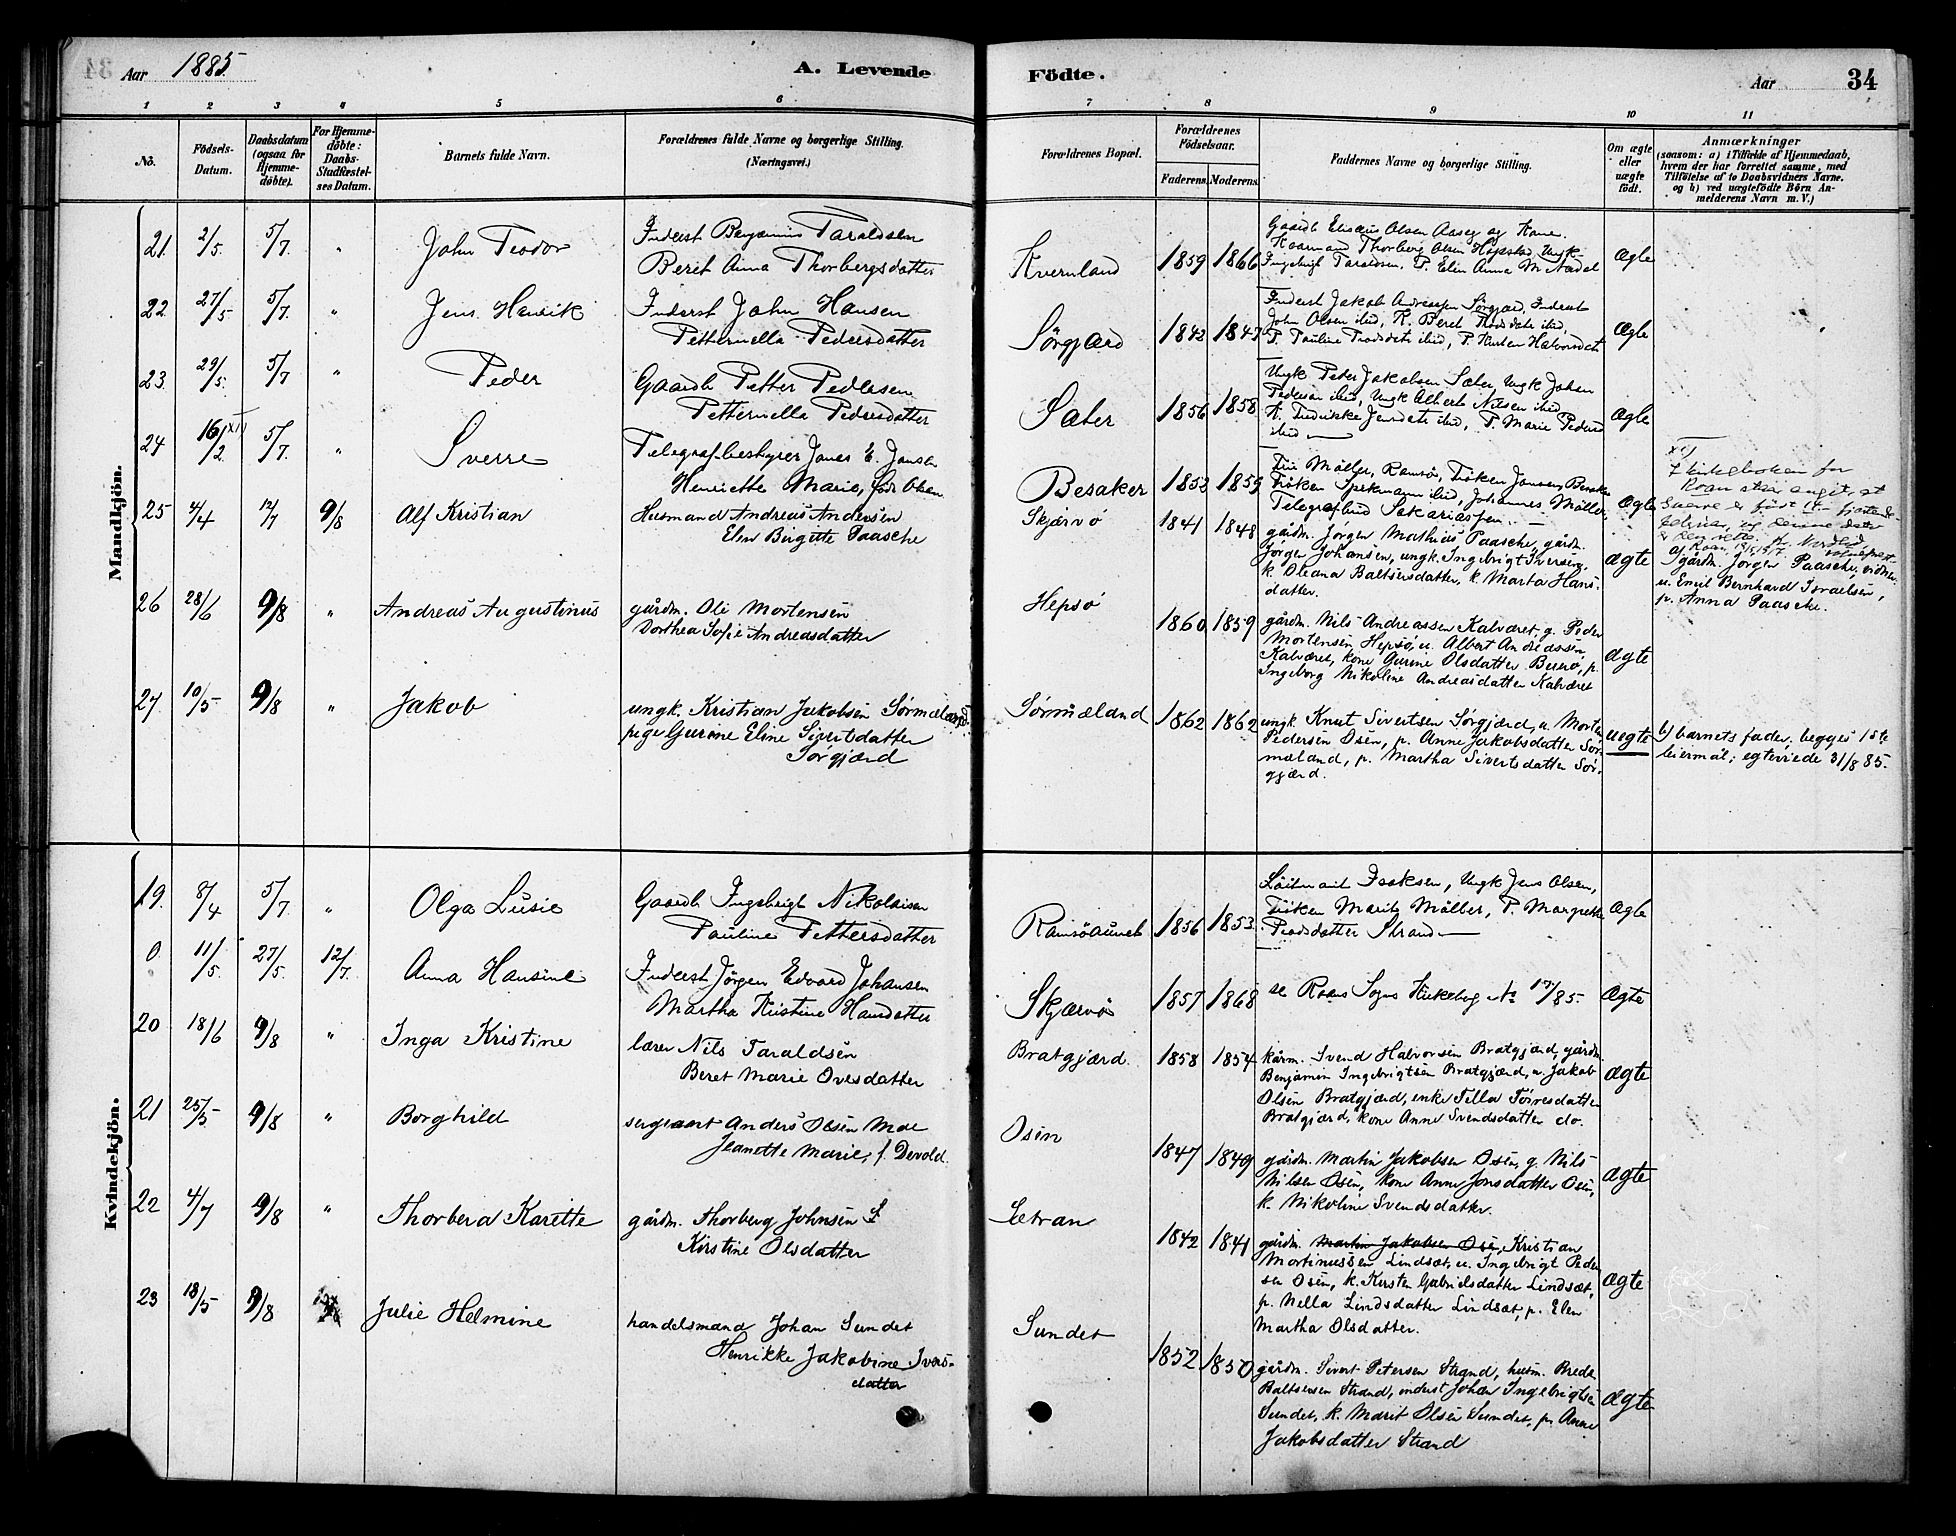 Aar 1885. A. Levende Födte. Aar 34
1 2 3 4 5 6 7 8 9 10 11
No.
Födsels-Datum.
Daabsdatum (ogsaa for Hjemme-döbte).
For Hjemme-döbte: Daabs-Stadfæstel-ses Datum.
Barnets fulde Navn.
Forældrenes fulde Navne og borgerlige Stilling.
(Næringsvei.)
Forældrenes Bopæl.
Forældrenes Födselsaar.
Faderens. Moderens.
Faddernes Navne og borgerlige Stilling.
Om ægte eller uægte födt.
Anmærkninger
(saasom: a) i Tilfælde af Hjemmedaab,
hvem der har forrettet samme, med
Tilföielse af to Daabsvidners Navne.
og b) ved uægtefödte Börn An-
melderens Navn m. V.)
Mandkjön.
21. 2/5 5/7 " John Teodor
Inderst Benjamin Taraldsen
Beret Anna Thorbergsdatter
Kvernland 1859 1866
Gaardb Elisæus Olsen Aaseg og Kone.
Kaarmand Thorberg Olsen Hepsø, Ungk
Ingebrigt Taraldsen, P. Elin Anna M.
Ægte
22. 27/5 5/7. " Jens Henrik
Inderst John Hansen
Petternella Pedersdatter
Sørgjærd 1843 1847
Inderst Jakob Andreassen Sørgjærd, Inderst
John Olsen ibid, K. Beret ibid,
P. Pauline ibid, P. Kirsten Halvorsdatt
Ægte
23. 29/5. 5/7 " Peder
Gaardb Petter Pedersen
Petternella Pedersdatter
Sæter 1856 1858
Ungk Peter Jakobsen Sæter, Ungk Johan
Pedersen ibid, Ungk Albert Nilsen ibid
K. Fredrikke Jensdatt ibid, P. Marie Pedersd
ibid
Ægte
24 16/2 5/7. " Sverre
Telegrafbestyrer Jonas E. Jansen
Henriette Marie, født Olsen
Besaker 1853 1859
Fru Möller, Ramsø, Frøken Jansen, Besaker
Frøken ibid, Johannes Möller,
Telegrafbud Sakariassen.
Ægte
25 4/4 12/7 9/8 Alf Kristian
Husmand Andreas Andersen
Elen Birgitte Paasche
Skjærvø 1841 1848
gårdm. Jørgen Mathias Paasche, gårdm.
Jørgen Johansen, ungk. Ingebrigt Iversen,
k. Oleana Baltsersdatter, k. Marta Hans-
datter.
ægte
gårdm. Jørgen Paasche, vidner
u. Emil Bernhard Israelsen,
p. Anna Paasche.
26 28/6 9/8 " Andreas Augustinus
gårdm. Ole Mortensen
Dorthea Sofie Andreasdatter
Hepsø 1860 1859
gårdm. Nils Andreassen Kalværet, g. Peder
Mortensen Hepsø, u. Albert Andreassen
Kalværet, kone Gurine Olsdatter Buerø, p.
Ingeborg Nikoline Andreasdatter Kalværet
ægte
27. 10/5 9/8 " Jakob
ungk. Kristian Jakobsen Sørmæland
pige Gurine Eline Sivertsdatter
Sørgjærd
Sørmæland 1862 1862
ungk. Knut Sivertsen Sørgjærd, u. Morten
Pedersen Osen, p. Anne Jakobsdatter Sør-
mæland, p. Martha Sivertsdatter Sør-
gjærd.
uegte
b) barnets fader, begges 1ste
leiermål; egteviede 31/8 85.
Kvindekjön.
19. 8/4 5/7. " Olga Lusie
Gaardb Ingebrigt Nikolaisen
Pauline Pettersdatter
Ramsøaunet 1856 1853.
Löitnant Isaksen, Ungk Jens Olsen,
Frøken Marit Möller, P. Margrethe
Strand
Ægte
0. 11/5. 27/5. 12/7. Anna Hansine
Inderst Jörgen Edvard Johansen
Martha Kristine Hansdatter
Skjærvø 1857 1868
se Roans Sogns Kirkebog No 17/85.
Ægte
20 18/6 9/8 " Inga Kristine
lærer Nils Taraldsen
Beret Marie Ovesdatter
Bratgjærd. 1858 1854
kårm. Svend Halvorsen Bratgjærd, gårdm.
Benjamin Ingebrigtsen Bratgjærd, u. Jakob
Olsen Bratgjærd, enke Sella Torresdatter
Bratgjærd, kone Anne Svendsdatter do.
ægte
21 25/5 9/8 " Borghild
sergeant Anders Olsen Moe
Jeanette Marie, f. Devold.
Osen 1847 1849
gårdm. Martin Jakobsen Osen, g. Nils
Nilsen Osen, kone Anne Jonsdatter Osen,
k. Nikoline Svendsdatter.
ægte
22 4/7 9/8 " Thorbera Karette
gårdm. Thorberg Johnsen S
Kirstine Olsdatter
Sætran 1842 1841
gårdm. Martin Jakobsen Osen, Kristian
Mortinussen Lindsæt, u. Ingebrigt Peder-
sen Osen, k. Kirsten Gabrielsdatter Lindsæt,
p. Nella Lindsdatter Lindsæt, p. Elen
Martha Olsdatter.
ægte
23 18/5 9/8 Julie Helmine
handelsmand Johan Sundet
Henrikke Jakobine Ivers-
datter
Sundet 1852 1850
gårdm. Sivert Petersen Strand, husm. Brede
Baltsersen Strand, inderst Johan Ingebrigtsen
Sundet, k. Marit Olsen Sundet, p. Anne
Jakobsdatter Strand
ægte